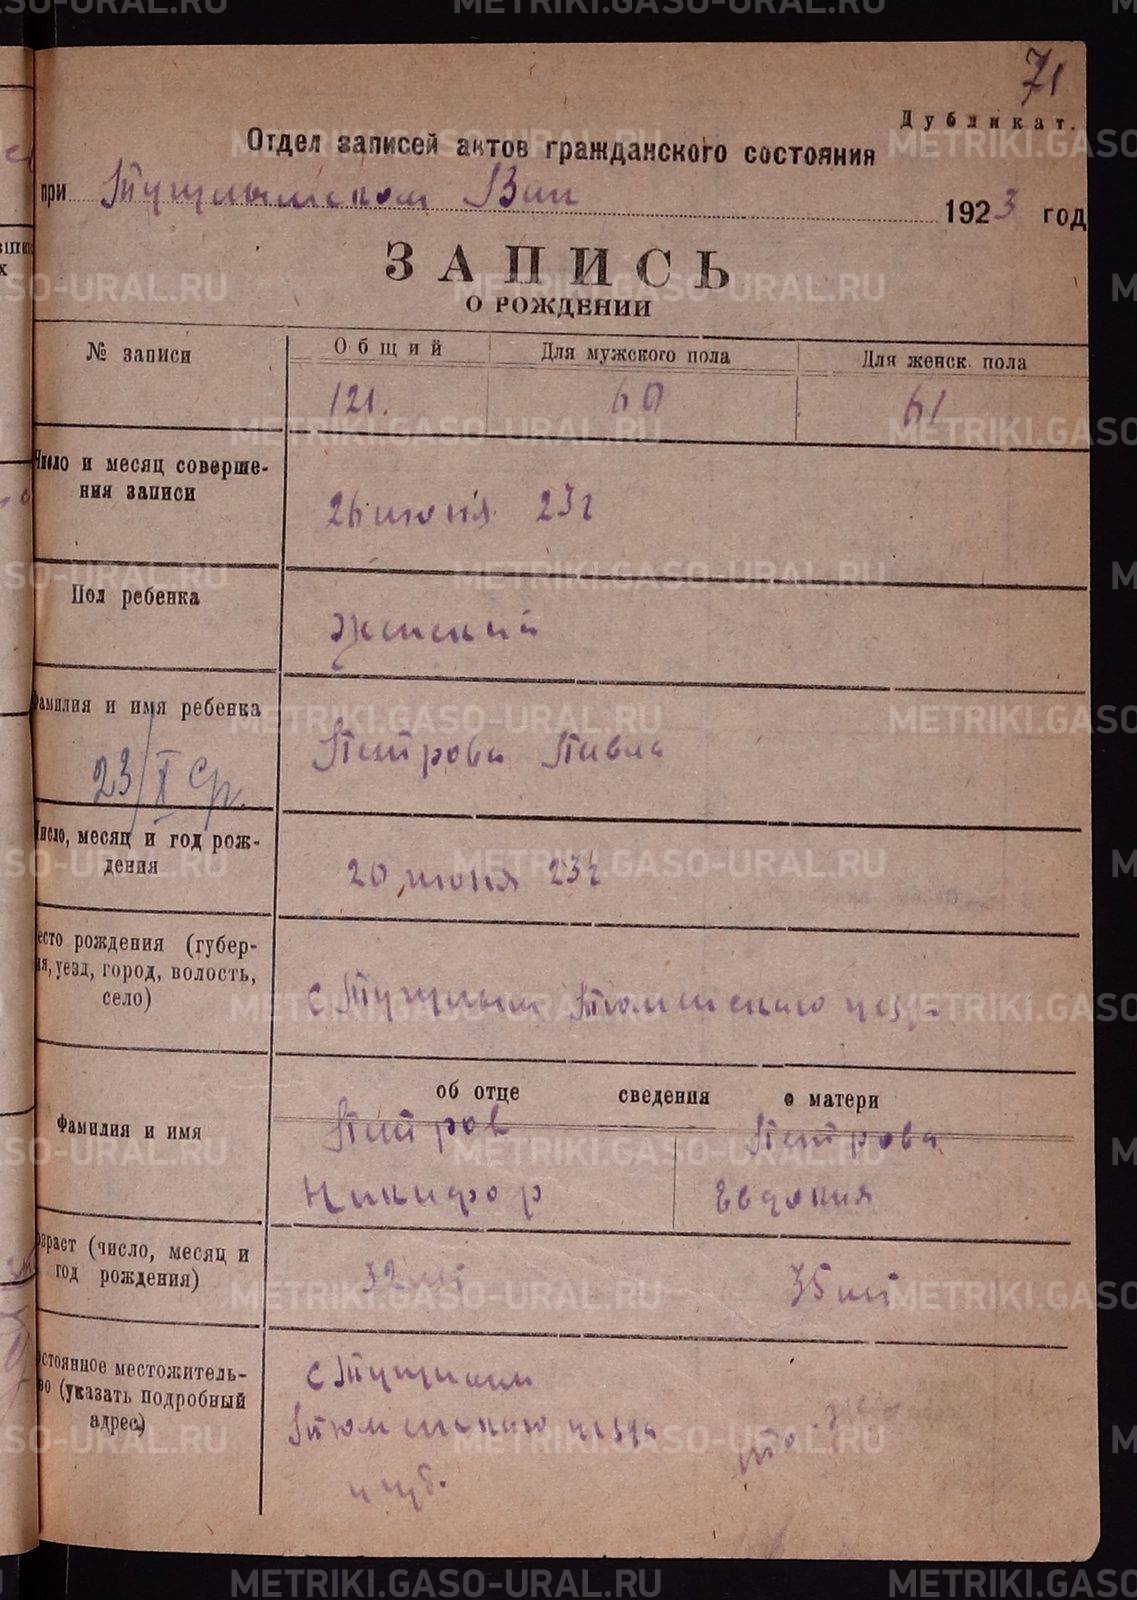 71
Дубликат.
Отдел записей актов гражданского состояния
при Тугулымском Вик 1923 год
ЗАПИСЬ
О РОЖДЕНИИ
№ записи
Общий
Для мужского пола
Для женск. пола
121.
60
61
Число и месяц соверше-
ния записи
26 июня 23 г
Пол ребенка
Женский
Фамилия и имя ребенка
Петрова Павла
23/X
Число, месяц и год рож-
дения
20 июня 23 г
есто рождения (губер-
ия, уезд, город, волость,
село)
с Тугулым Тюменского уезда
об отце сведения о матери
Фамилия и имя
Петров
Никифор
Петрова
Евдокия
озраст (число, месяц и
год рождения)
32 лет
35 лет
остоянное местожитель-
во (указать подробный
адрес)
с Тугулым
Тюменского уезда
и губ.
то же
METRIKI.GASO-URAL.RU